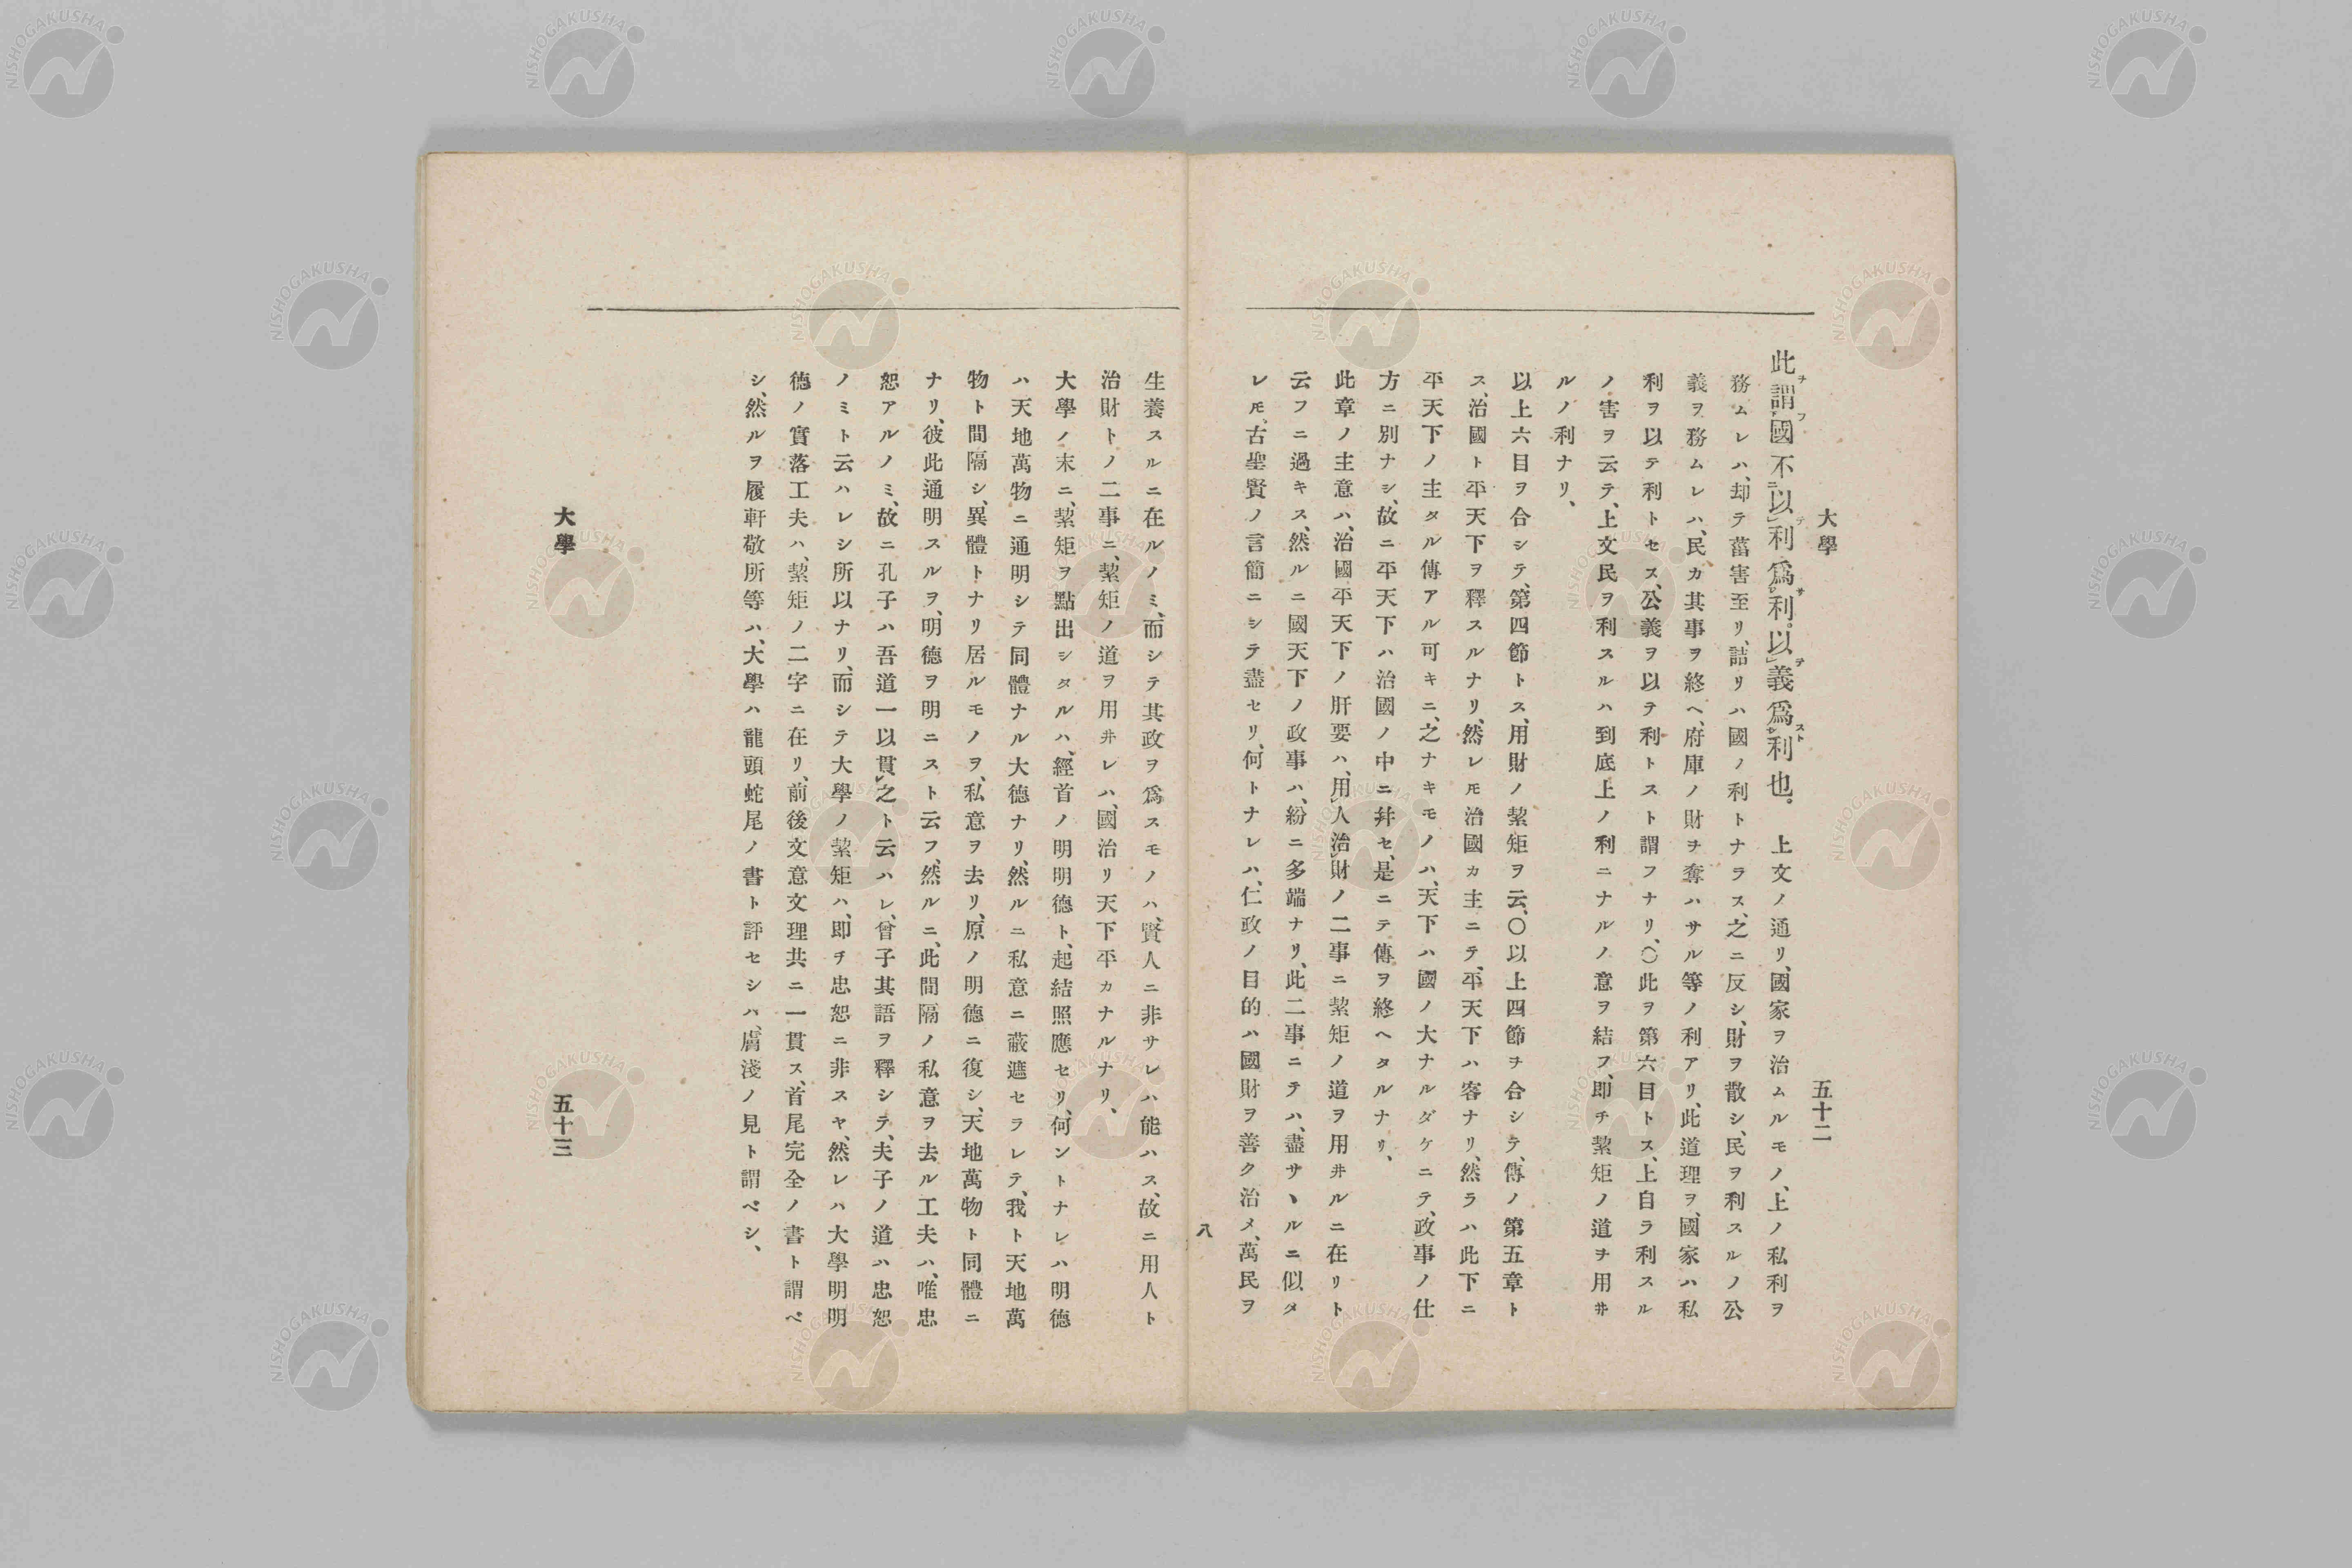 大學
五十二
此謂國不以利爲利。以義爲利也。 上文ノ通リ、國家ヲ治ムルモノ、上ノ私利ヲ
務ムレハ、却テ菑害至リ、詰リハ國ノ利トナラス、之ニ反シ、財ヲ散シ、民ヲ利スルノ公
義ヲ務ムレハ、民カ其事ヲ終ヘ、府庫ノ財ヲ奪ハサル等ノ利アリ、此道理ヲ、國家ハ私
利ヲ以テ利トセス、公義ヲ以テ利トスト謂フナリ、〇此ヲ第六目トス、上自ラ利スル
ノ害ヲ云テ、上文民ヲ利スルハ到底上ノ利ニナルノ意ヲ結フ、即チ絜矩ノ道ヲ用井
ルノ利ナリ、
以上六目ヲ合シテ、第四節トス、用財ノ絜矩ヲ云、〇以上四節ヲ合シテ、傳ノ第五章ト
ス、治國ト平天下ヲ釋スルナリ、然レ𪜈治國カ主ニテ、平天下ハ客ナリ、然ラハ此下ニ
平天下ノ主タル傳アル可キニ、之ナキモノハ、天下ハ國ノ大ナルダケニテ、政事ノ仕
方ニ別ナシ、故ニ平天下ハ治國ノ中ニ幷セ、是ニテ傳ヲ終ヘタルナリ、
此章ノ主意ハ、治國平天下ノ肝要ハ、用人治財ノ二事ニ絜矩ノ道ヲ用井ルニ在リト
云フニ過キス、然ルニ國天下ノ政事ハ、紛ニ多端ナリ、此二事ニテハ、盡サヽルニ似タ
レ𪜈、古聖賢ノ言簡ニシテ盡セリ、何トナレハ、仁政ノ目的ハ國財ヲ善ク治メ、萬民ヲ
八
生養スルニ在ルノミ、而シテ其政ヲ爲スモノハ、賢人ニ非サレハ能ハス、故ニ用人ト
治財トノ二事ニ、絜矩ノ道ヲ用井レハ、國治リ天下平カナルナリ、
大學ノ末ニ、絜矩ヲ點出シタルハ、經首ノ明明德ト、起結照應セリ、何ントナレハ明德
ハ天地萬物ニ通明シテ同體ナル大德ナリ、然ルニ私意ニ蔽遮セラレテ、我ト天地萬
物ト間隔シ、異體トナリ居ルモノヲ、私意ヲ去リ、原ノ明德ニ復シ、天地萬物ト同體ニ
ナリ、彼此通明スルヲ、明德ヲ明ニスト云フ、然ルニ、此間隔ノ私意ヲ去ル工夫ハ、唯忠
恕アルノミ、故ニ孔子ハ吾道一以貫之ト云ハレ、曾子其語ヲ釋シテ、夫子ノ道ハ忠恕
ノミト云ハレシ所以ナリ、而シテ大學ノ絜矩ハ、即チ忠恕ニ非スヤ、然レハ大學明明
德ノ實落工夫ハ、絜矩ノ二字ニ在リ、前後文意文理共ニ一貫ス、首尾完全ノ書ト謂ベ
シ、然ルヲ履軒敬所等ハ、大學ハ龍頭蛇尾ノ書ト評セシハ、膚淺ノ見ト謂ベシ、
大學
五十三